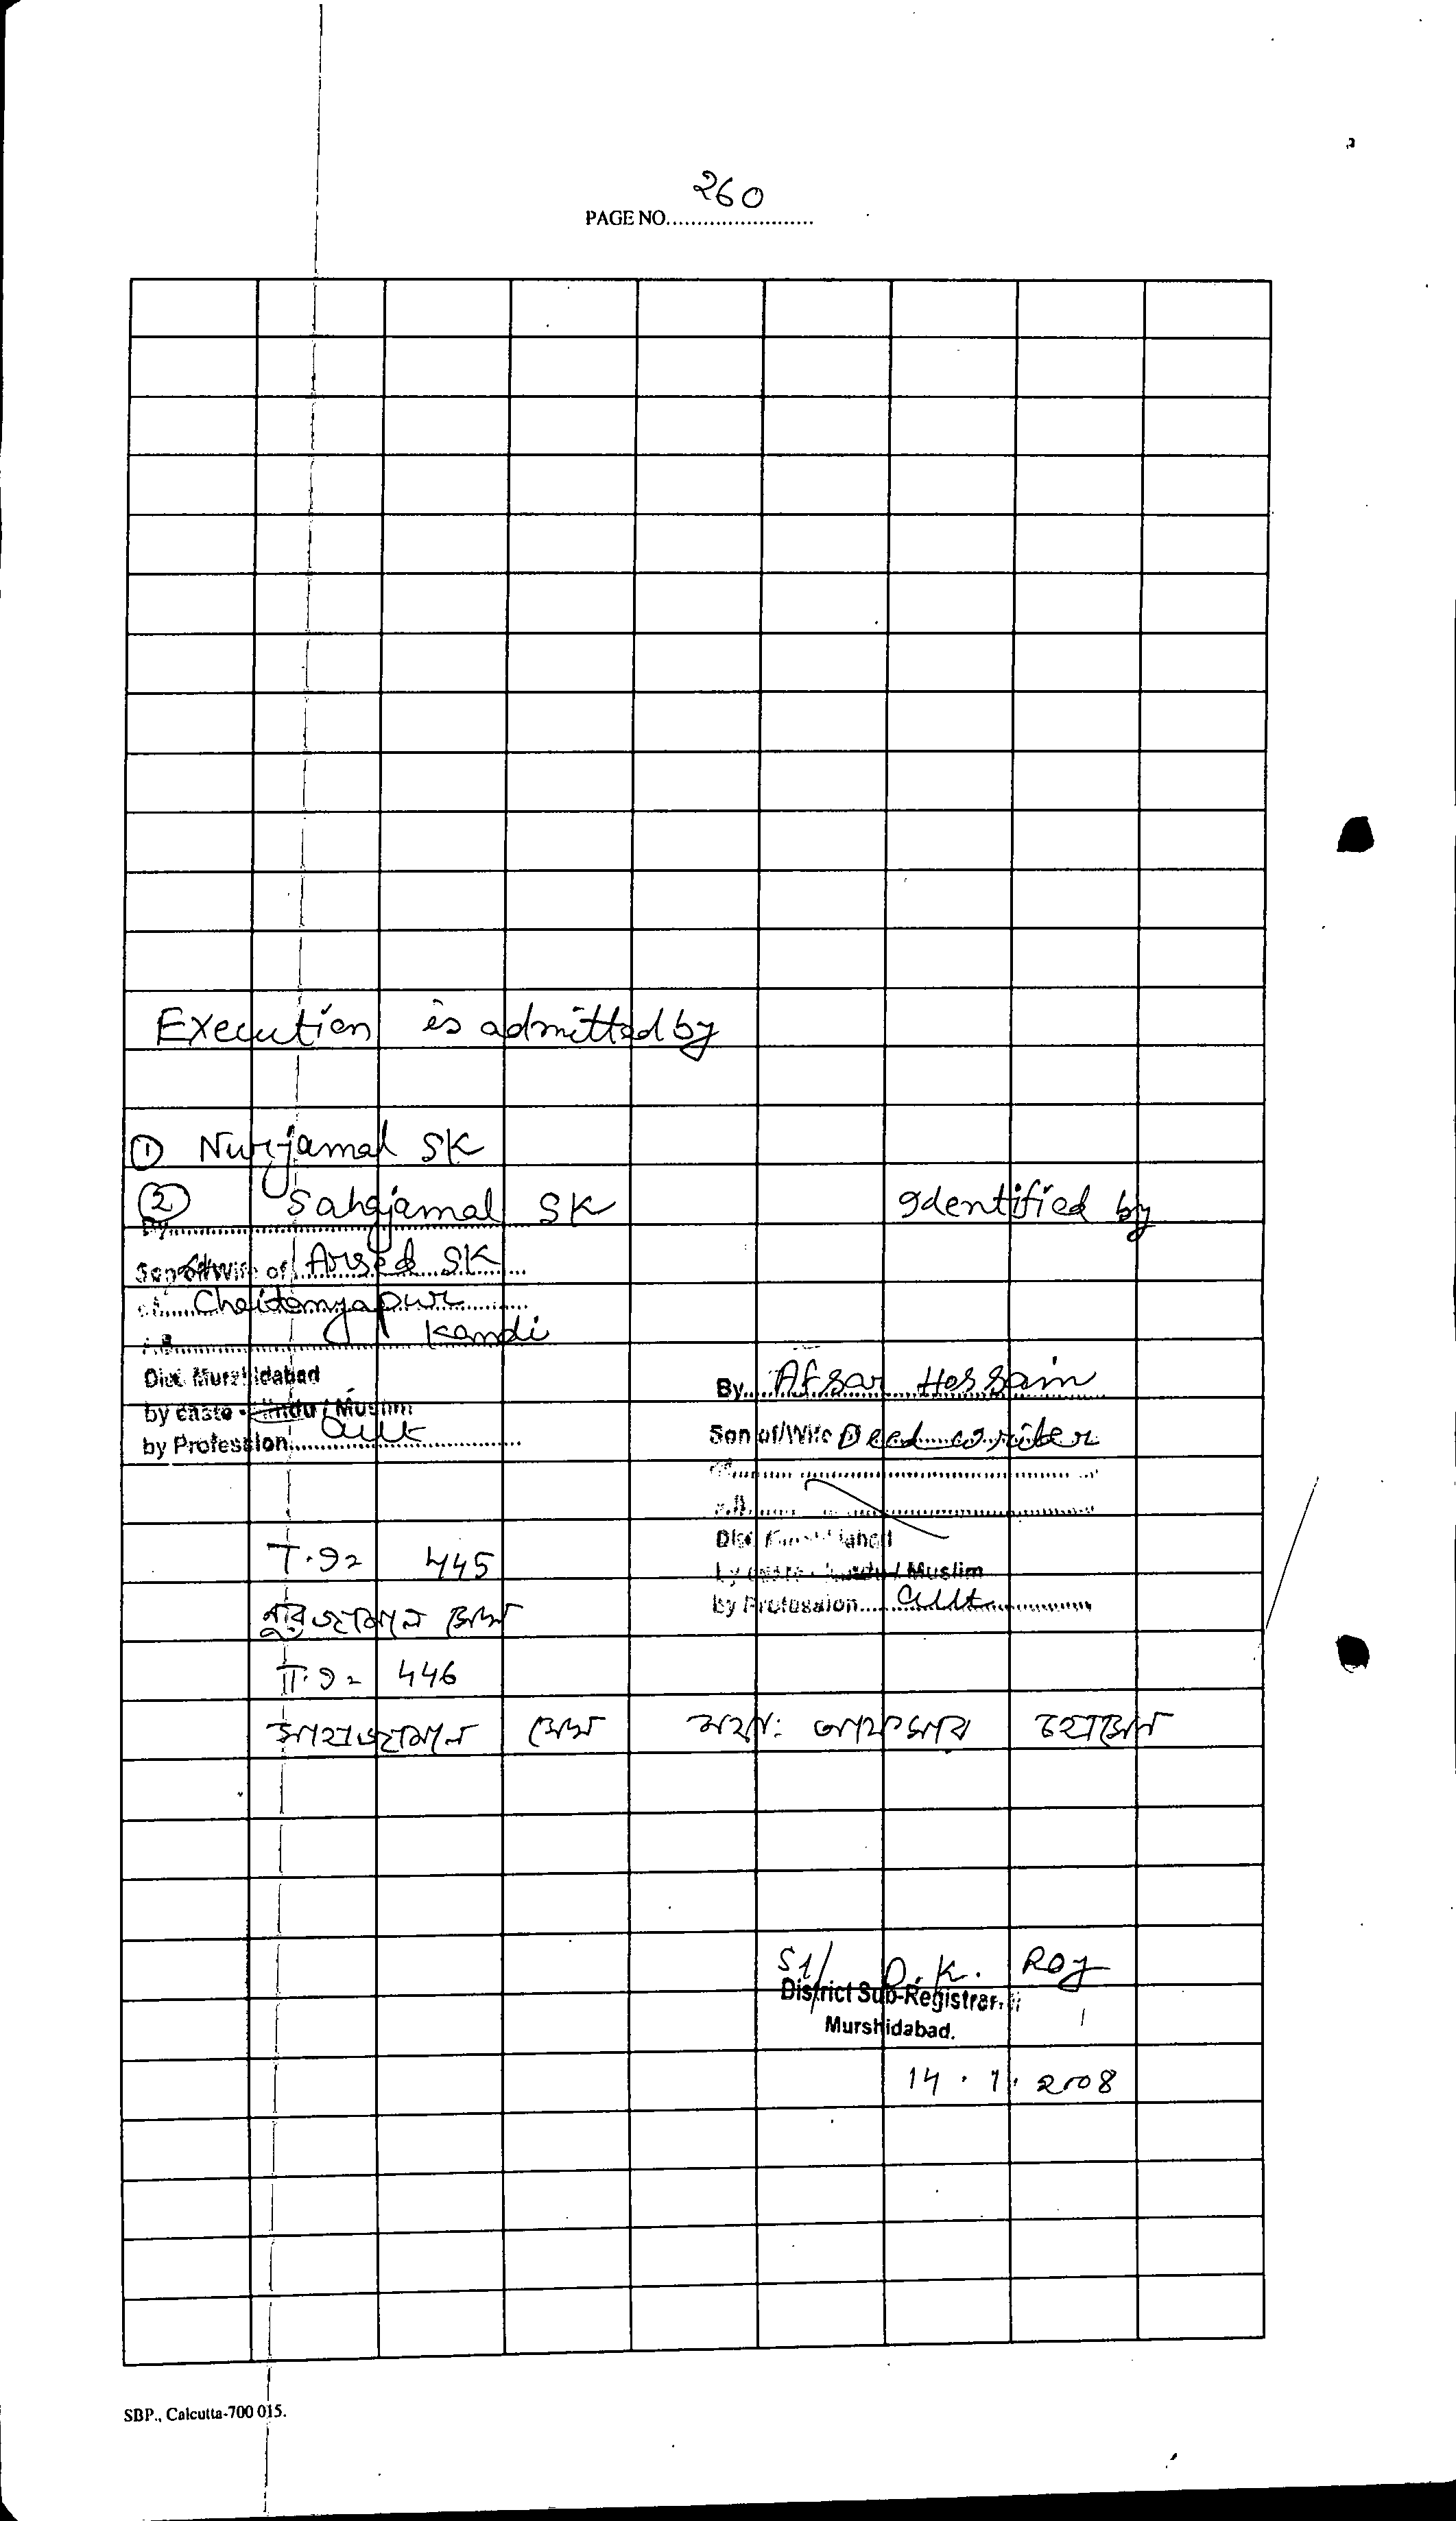 260
PAGE NO........................
Execution is admitted by
① Nurjamal SK
② Sahajamal SK
By........................
Son of/Wife of Arsed SK
of Chaitanyapur
P.S. Kandi
Dist. Murshidabad
by caste - Hindu / Muslim
by Profession Cult
Identified by
By Afsar Hossain
Son of/Wife Deed writer
of........................
P.S........................
Dist. Murshidabad
by caste - Hindu / Muslim
by Profession Cult
T.92 445
নুরজামাল সেখ
T.92 446
সাহাজামাল সেখ
মহঃ আফসার হোসেন
Sd/ D. K. Roy
District Sub-Registrar
Murshidabad.
14.1.2008
SBP., Calcutta-700 015.